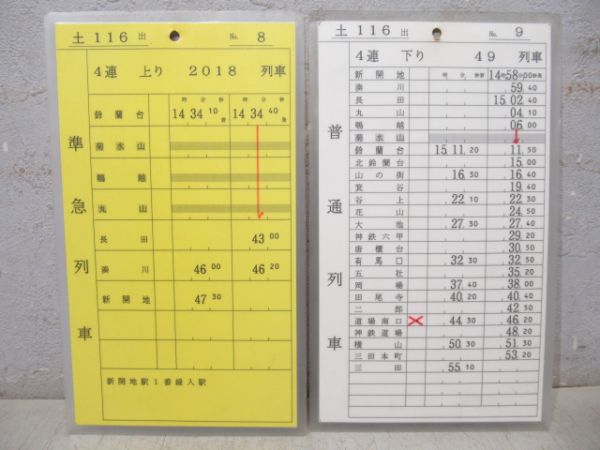 土 116 出 No. 8
4連 上り 2018 列車
準急列車
時 分 秒 時 分 秒
鈴蘭台 14 34 10着 14 34 40発
菊水山
鵯越
丸山
長田 43 00
湊川 46 00 46 20
新開地 47 30
新開地駅1番線入駅
土 116 出 No. 9
4連 下り 49 列車
普通列車
新開地 時 分 秒着 14時58分00秒発
湊川 59 40
長田 15 02 40
丸山 04 10
鵯越 06 00
菊水山
鈴蘭台 15 11 20 11 50
北鈴蘭台 15 00
山の街 16 30 16 40
箕谷 19 40
谷上 22 10 22 30
花山 24 50
大池 27 30 27 40
神鉄六甲 29 20
唐櫃台 30 50
有馬口 32 30 32 50
五社 35 20
岡場 37 40 38 00
田尾寺 40 20 40 40
二郎 42 50
道場南口 44 30 46 20
神鉄道場 48 20
横山 50 30 51 30
三田本町 53 20
三田 55 10